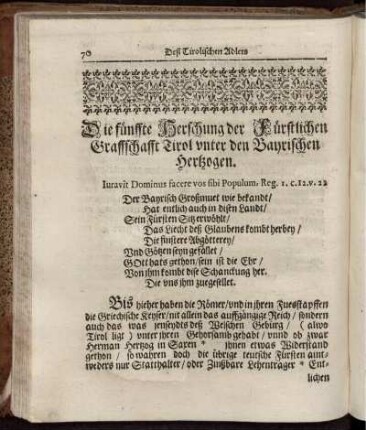 70 Deß Tirolischen Adlers
Die fünffte Herschung der Fürstlichen
Graffschafft Tirol vnter den Bayrischen
Hertzogen.
Iuravit Dominus facere vos sibi Populum. Reg. 1. C.12.v.22
Der Bayrisch Großmuet wie bekandt/
Hat entlich auch in disen Landt/
Sein Fürsten Sitz erwöhlt/
Das Liecht deß Glaubens kombt herbey/
Die finstere Abgötterey/
Vnd Götzen seyn gefället/
GOtt hats gethon/ sein ist die Ehr/
Von ihm kombt dise Schanckung her.
Die vns ihm zuegesellet.
Bis hieher haben die Römer/ vnd in ihren Fuesstapffen
die Griechische Keyser/ nit allein das auffgängige Reich/ sondern
auch das was jenseydts deß Welschen Gebürg/ (alwo
Tirol ligt) vnter ihren Gehorsamb gehabt/ vnnd ob zwar
Herman Hertzog in Saxen * ihnen etwas Widerstand
gethon/ so wahren doch die übrige teutsche Fürsten aint-
weders nur Statthalter/ oder Zinßbare Lehenträger * Ent-
lichen